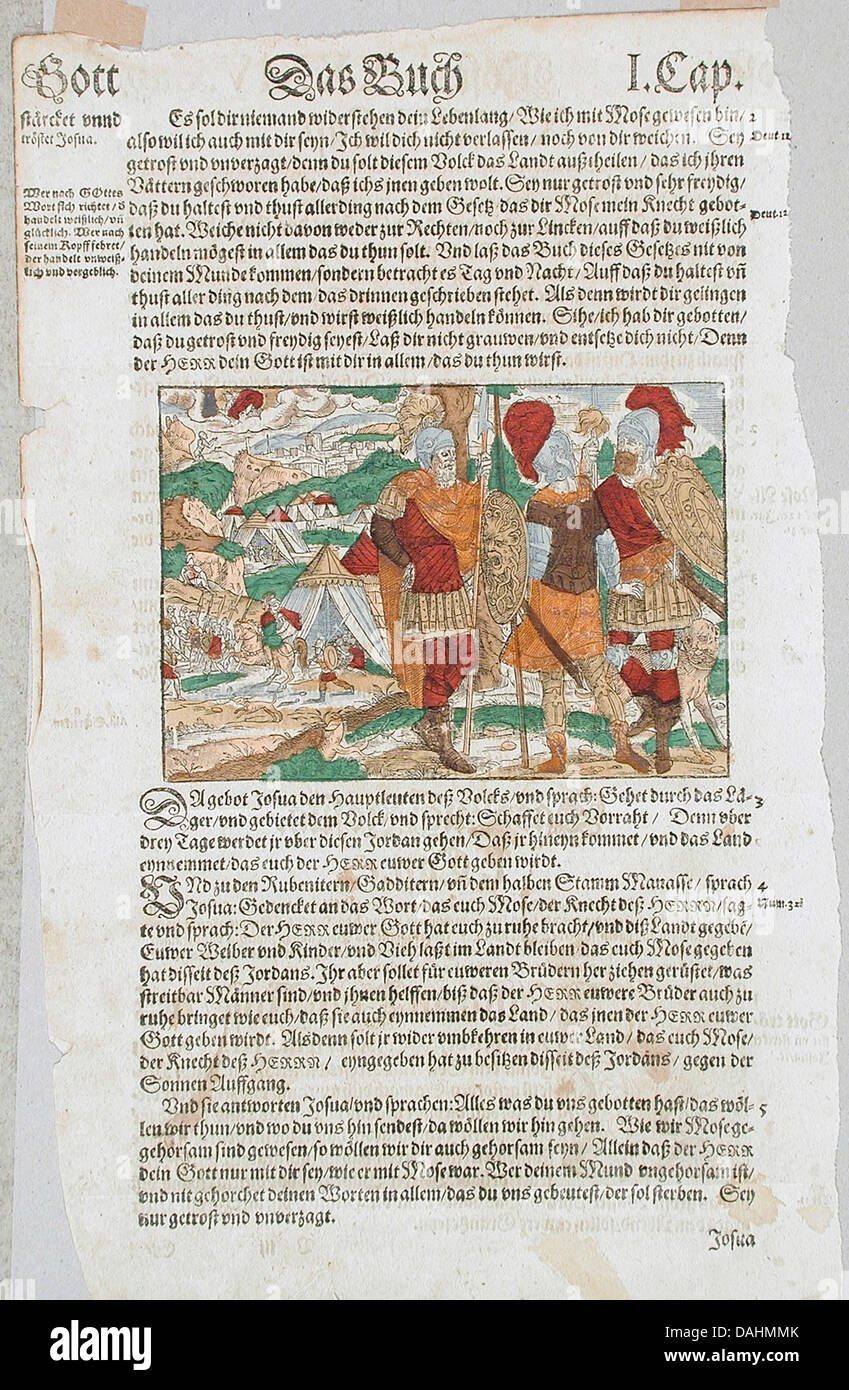 Gott Das Buch I. Cap.
stärcket vnnd
tröstet Josua.
Wer nach GOttes
Wort sich richtet / d
handelt weißlich / vñ
glücklich. Wer nach
seinem Kopff fehret /
der handelt vnweiß-
lich vnd vergeblich.
Es sol dir niemand widerstehen dein Lebenlang / Wie ich mit Mose gewesen bin / 2
also wil ich auch mit dir seyn / Jch wil dich nicht verlassen / noch von dir weichen. Sey Deut.11
getrost vnd vnverzagt / denn du solt diesem Volck das Landt außtheilen / das ich jhren
Vättern geschworen habe / daß ichs jnen geben wolt. Sey nur getrost vnd sehr freydig /
daß du haltest vnd thust aller ding nach dem Gesetz das dir Mose mein Knecht gebot- Deut.12
ten hat. Weiche nicht davon weder zur Rechten / noch zur Lincken / auff daß du weißlich
handeln mögest in allem das du thun solt. Vnd laß das Buch dieses Gesetzes nit von
deinem Munde kommen / sondern betracht es Tag vnd Nacht / Auff daß du haltest vñ
thust aller ding nach dem / das drinnen geschrieben stehet. Als denn wirdt dir gelingen
in allem das du thust / vnd wirst weißlich handeln können. Sihe / ich hab dir gebotten /
daß du getrost vnd freydig seyest / Laß dir nicht grauwen / vnd entsetze dich nicht / Denn
der HERR dein Gott ist mit dir in allem / das du thun wirst.
DA gebot Josua den Hauptleuten deß Volcks / vnd sprach: Gehet durch das Lä- 3
ger / vnd gebietet dem Volck / vnd sprecht: Schaffet euch Vorraht / Denn vber
drey Tage werdet jr vber diesen Jordan gehen / Daß jr hineyn kommet / vnd das Land
eynnemmet / das euch der HERR euwer Gott geben wirdt.
VNd zu den Rubenitern / Gadditern / vñ dem halben Stamm Manasse / sprach 4
Josua: Gedencket an das Wort / das euch Mose / der Knecht deß HERRN / sag- Num.32
te vnd sprach: Der HERR euwer Gott hat euch zu ruhe bracht / vnd diß Landt gegebē /
Euwer Weiber vnd Kinder / vnd Vieh laßt im Landt bleiben / das euch Mose gegeben
hat disseit deß Jordans. Jhr aber sollet für euweren Brüdern her ziehen gerüstet / was
streitbar Männer sind / vnd jhnen helffen / biß daß der HERR euwere Brüder auch zu
ruhe bringet wie euch / daß sie auch eynnemmen das Land / das jnen der HERR euwer
Gott geben wirdt. Als denn solt jr wider vmbkehren in euwer Land / das euch Mose /
der Knecht deß HERRN / eyngegeben hat zu besitzen disseit deß Jordans / gegen der
Sonnen Auffgang.
Vnd sie antworten Josua / vnd sprachen: Alles was du vns gebotten hast / das wöl- 5
len wir thun / vnd wo du vns hin sendest / da wöllen wir hin gehen. Wie wir Mose ge-
gehorsam sind gewesen / so wöllen wir dir auch gehorsam seyn / Allein daß der HERR
dein Gott nur mit dir sey / wie er mit Mose war. Wer deinem Mund vngehorsam ist /
vnd nit gehorchet deinen Worten in allem / das du vns gebeutest / der sol sterben. Sey
nur getrost vnd vnverzagt.
Josua
alamy
Image ID: DAHMMK
www.alamy.com